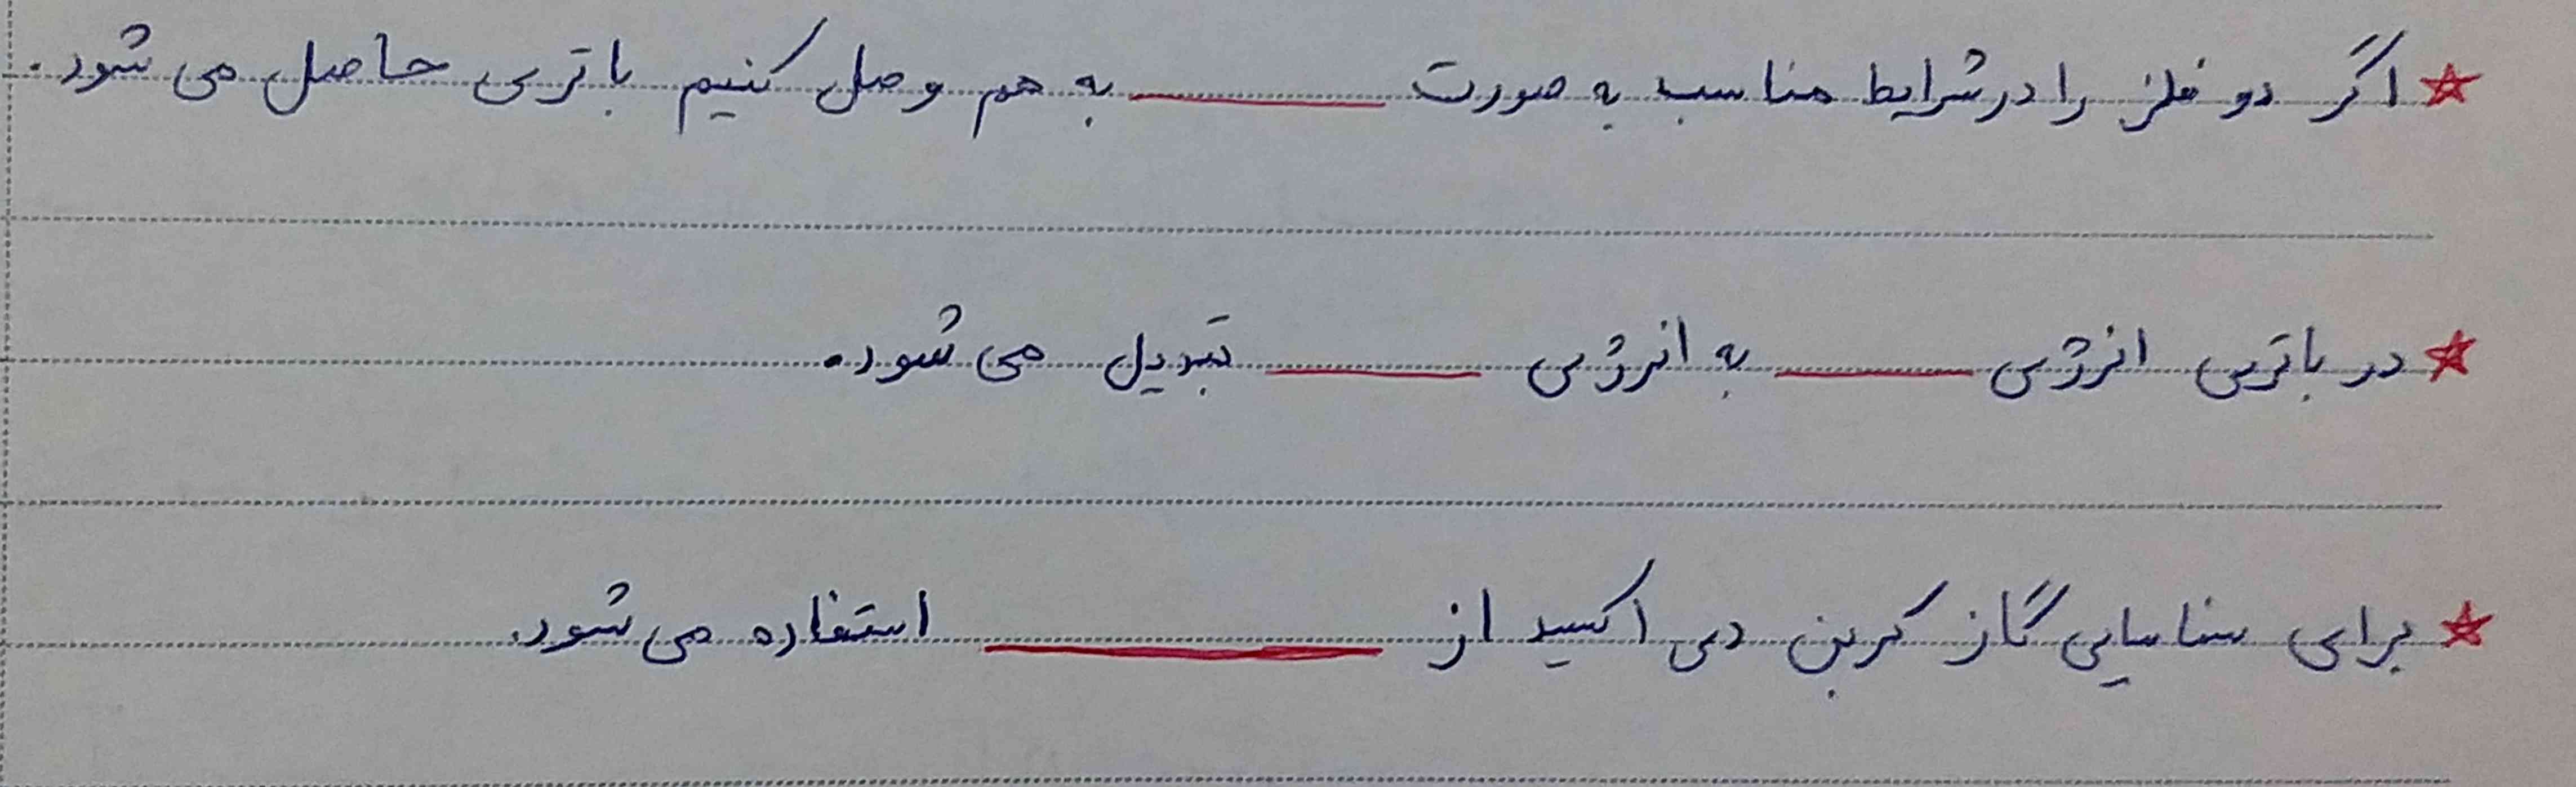 ★ اگر دو فلز را در شرایط مناسب به صورت ______ به هم وصل کنیم باتری حاصل می شود.
★ در باتری انرژی ______ به انرژی ______ تبدیل می شود.
★ برای شناسایی گاز کربن دی اکسید از ______ استفاده می شود.